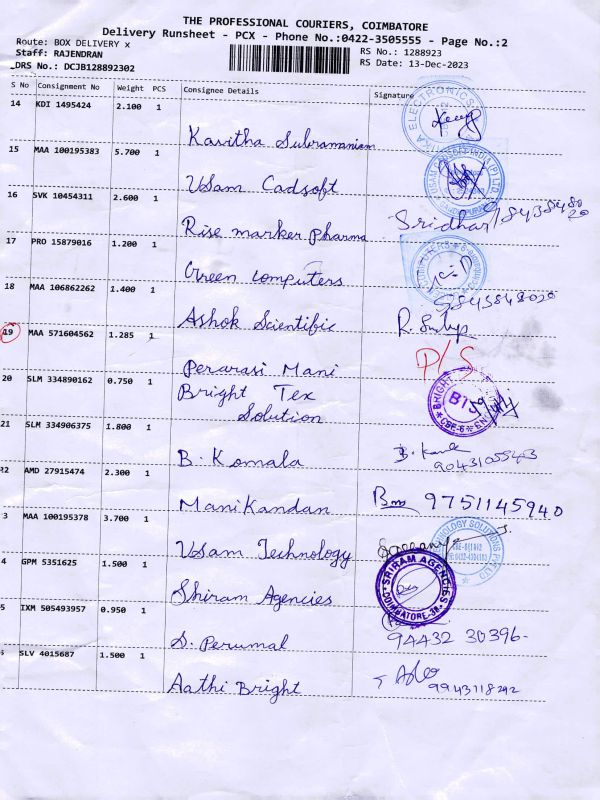 THE PROFESSIONAL COURIERS, COIMBATORE
Delivery Runsheet - PCX - Phone No.:0422-3505555 - Page No.:2
Route: BOX DELIVERY x
RS No.: 1288923
Staff: RAJENDRAN
RS Date: 13-Dec-2023
DRS No.: DCJB128892302
S No Consignment No Weight PCS Consignee Details Signature
14 KDI 1495424 2.100 1
Kavitha Subramaniem
15 MAA 100195383 5.700 1
Usam Cadsoft
16 SVK 10454311 2.600 1
Rise marker pharma Sridhar
17 PRO 15879016 1.200 1
Green computers
18 MAA 106862262 1.400 1
Ashok Scientific R.
19 MAA 571604562 1.285 1
P/S
Perarasi Mani
20 SLM 334890162 0.750 1
Bright Tex
Solution
BRIGHT BTS
21 SLM 334906375 1.800 1
B. Komala
22 AMD 27915474 2.300 1
Manikandan 9751145940
3 MAA 100195378 3.700 1
Usam Technology
4 GPM 5351625 1.500 1
Shriram Agencies
SRIRAM AGENCIES COIMBATORE-38
5 IXM 505493957 0.950 1
S. Perumal 94432 30396
SLV 4015687 1.500 1
Aathi Bright